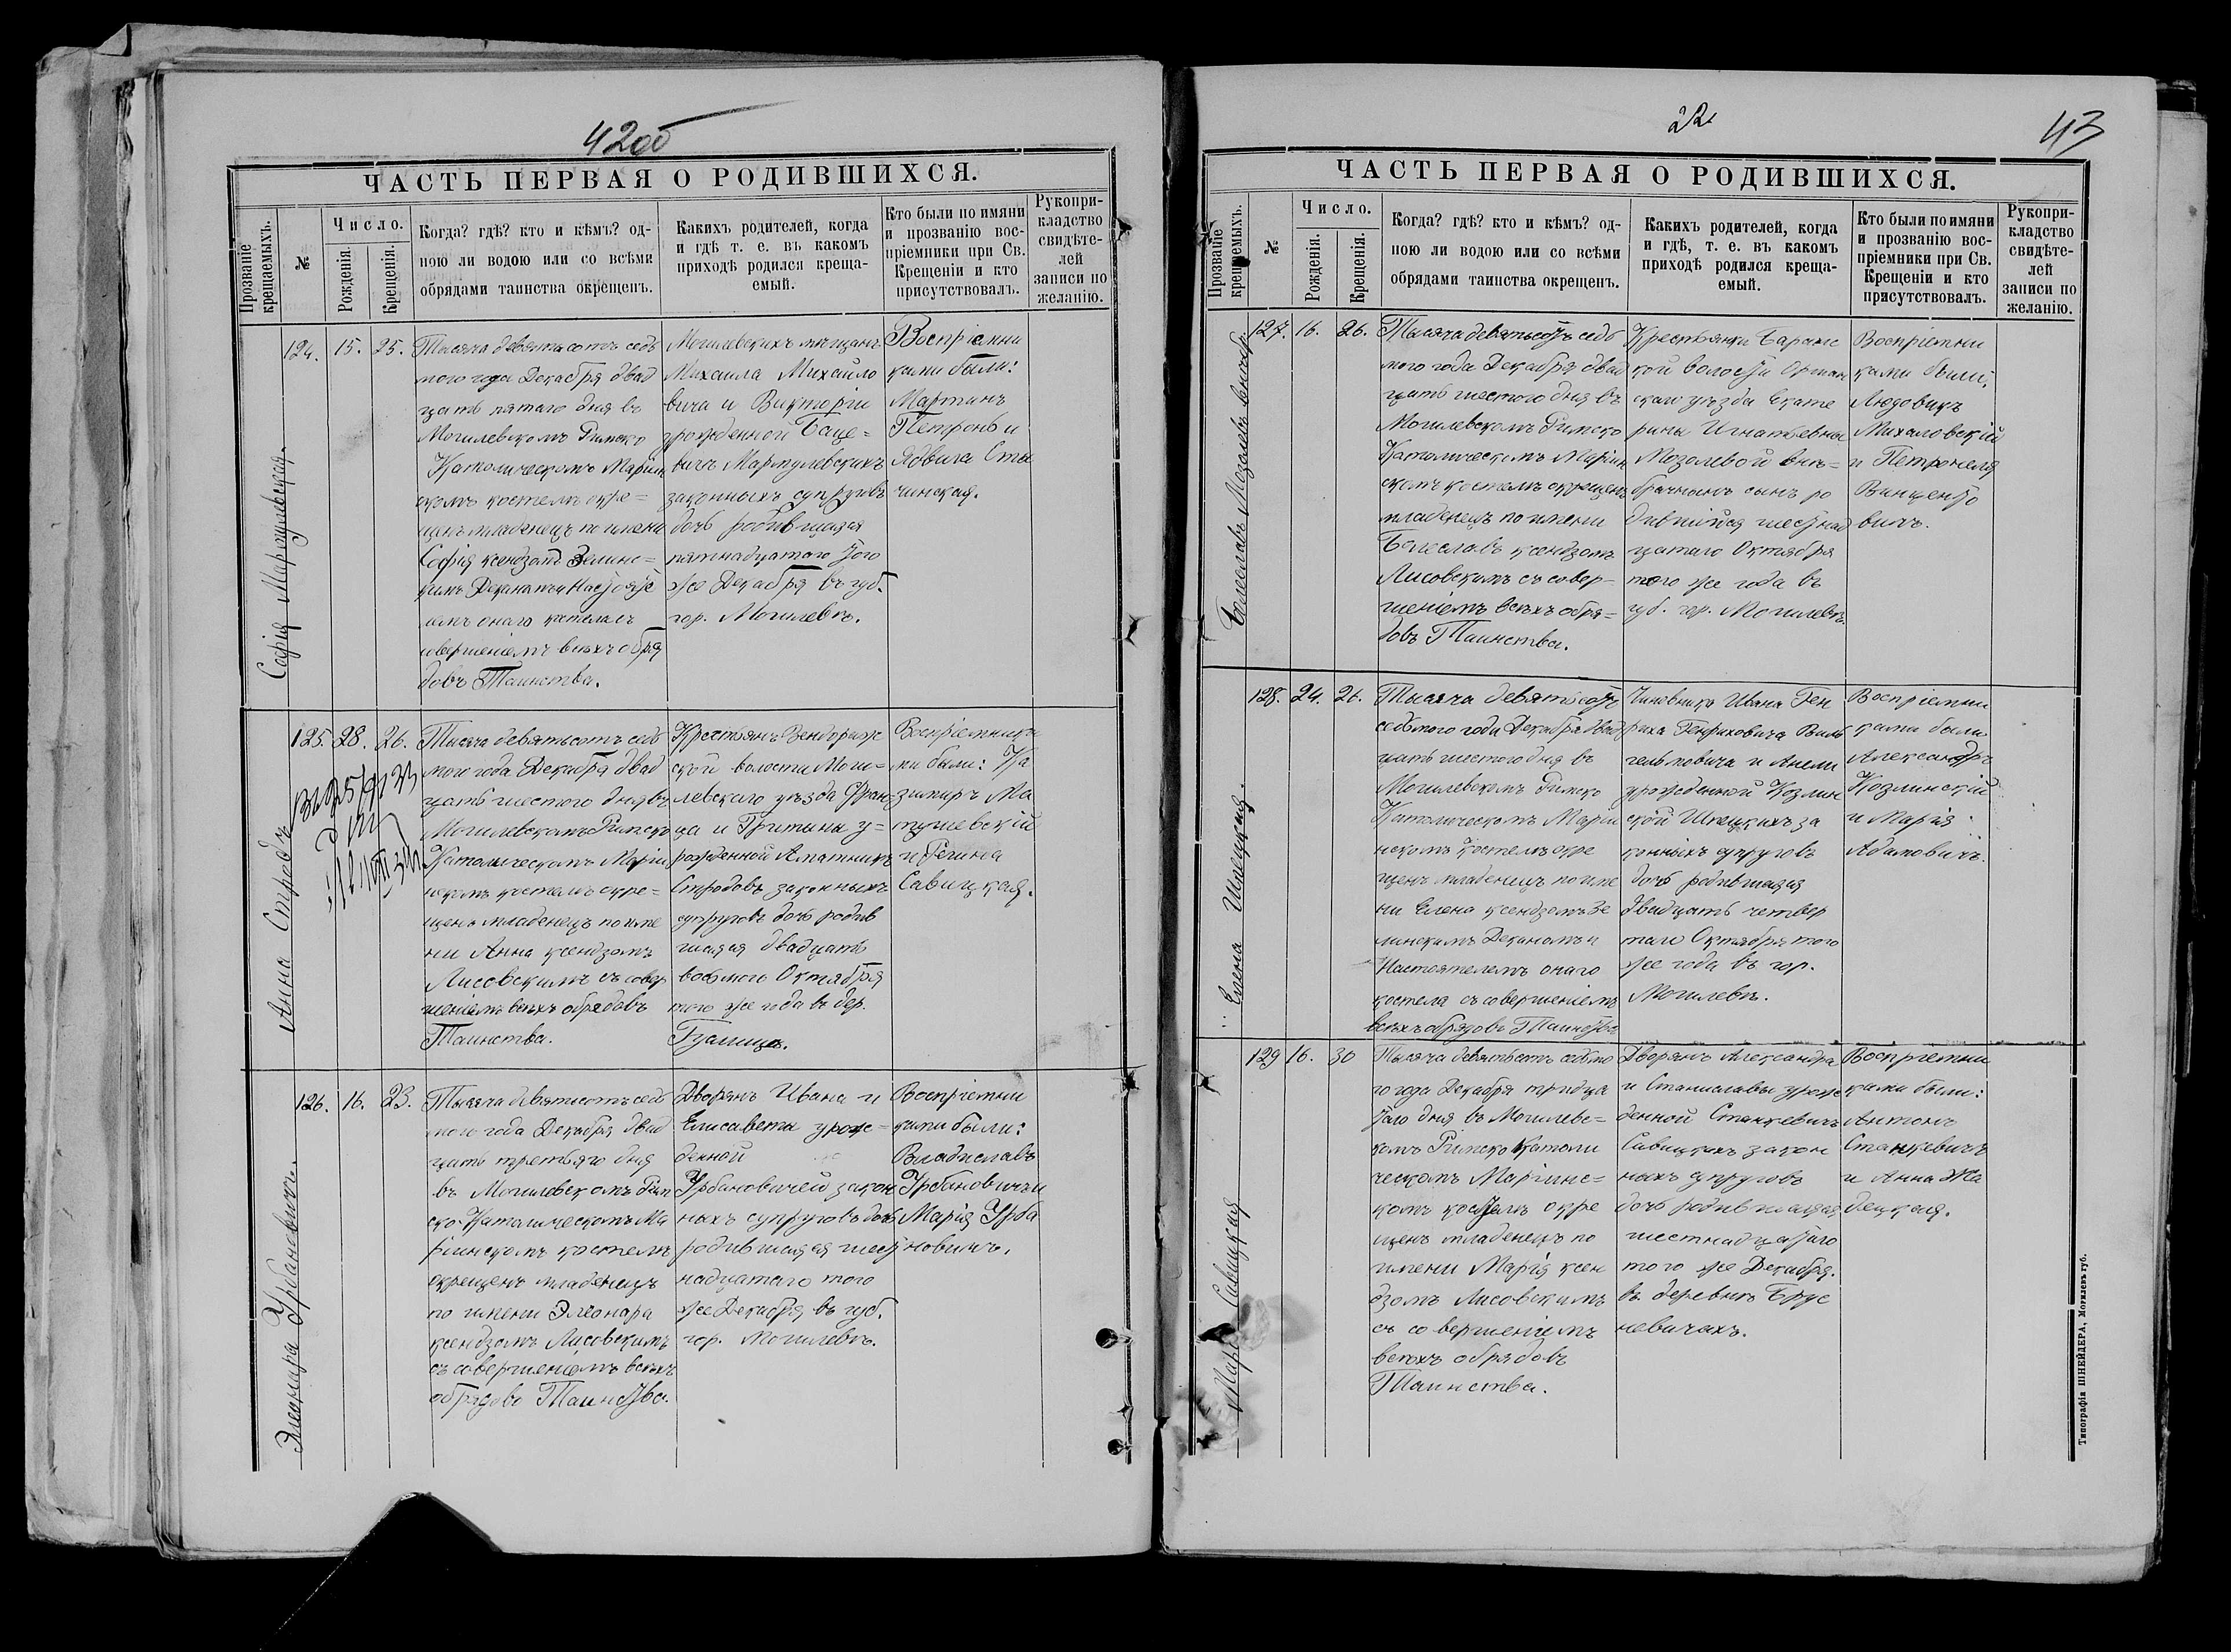 42об
ЧАСТЬ ПЕРВАЯ О РОДИВШИХСЯ.
Прозваніе крещаемыхъ.
№
Число.
Рожденія.
Крещенія.
Когда? гдѣ? кто и кѣмъ? од-
ною ли водою или со всѣми
обрядами таинства окрещенъ.
Какихъ родителей, когда
и гдѣ т. е. въ какомъ
приходѣ родился креща-
емый.
Кто были по имяни
и прозванію вос-
пріемники при Св.
Крещеніи и кто
присутствовалъ.
Рукопри-
кладство
свидѣте-
лей
записи по
желанію.
Софія Мартулевская.
124.
15.
25.
Тысяча девятьсотъ седь
мого года Декабря двад
цать пятаго дня въ
Могилевскомъ Римско
Католическомъ Маріин
скомъ костелѣ окре=
щенъ младенецъ по имени
Софія ксендзомъ Зелинс=
кимъ Деканомъ и Настояте
лемъ онаго костела съ
совершеніемъ всѣхъ обря
довъ Таинства.
Могилевскихъ мѣщанъ
Михаила Михайло
вича и Викторіи
урожденной Баце=
вичъ Мартулевскихъ
законныхъ супруговъ
дочь родившаяся
пятнадцатого того
же Декабря въ губ.
гор. Могилевѣ.
Воспріемни
ками были:
Мартинъ
Петронь и
Ядвига Сты
чинская.
Анна Стродъ
125.
28.
26.
Тысяча девятьсотъ седь
мого года Декабря двад
цать шестого дня въ
Могилевскомъ Римско
Католическомъ Маріи
нскомъ костелѣ окре=
щенъ младенецъ по име
ни Анна ксендзомъ
Лисовскимъ съ совер
шеніемъ всѣхъ обрядовъ
Таинства.
Крестьянъ Вендориж
ской волости Моги=
левскаго уѣзда Фран=
ца и Христины у=
рожденной Аматникъ
Стродовъ законныхъ
супруговъ дочь родив
шаяся двадцать
восьмого Октября
того же года въ дер.
Гуслища.
Воспріемника
ми были: Ка
зимиръ Ма
тушевскій
и Регина
Савицкая.
Элеонора Урбановичъ.
126.
16.
23.
Тысяча девятьсотъ седь
мого года Декабря двад
цать третьяго дня
въ Могилевскомъ Рим
ско-Католическомъ Ма
ріинскомъ костелѣ
окрещенъ младенецъ
по имени Элеонора
ксендзомъ Лисовскимъ
съ совершеніемъ всѣхъ
обрядовъ Таинства.
Дворянъ Ивана и
Елисаветы урож=
денной
Урбановичей закон
ныхъ супруговъ дочь
родившаяся шест
надцатаго того
же Декабря въ губ.
гор. Могилевѣ.
Воспріемни
ками были:
Владиславъ
Урбановичъ и
Марія Урба
новичъ.
22
43
ЧАСТЬ ПЕРВАЯ О РОДИВШИХСЯ.
Прозваніе крещаемыхъ.
№
Число.
Рожденія.
Крещенія.
Когда? гдѣ? кто и кѣмъ? од-
ною ли водою или со всѣми
обрядами таинства окрещенъ.
Какихъ родителей, когда
и гдѣ, т. е. въ какомъ
приходѣ родился креща-
емый.
Кто были по имяни
и прозванію вос-
пріемники при Св.
Крещеніи и кто
присутствовалъ.
Рукопри-
кладство
свидѣте-
лей
записи по
желанію.
Болеславъ Мозалевъ внѣбр.
127.
16.
26.
Тысяча девятьсотъ седь
мого года Декабря двад
цать шестого дня въ
Могилевскомъ Римско
Католическомъ Маріин
скомъ костелѣ окрещенъ
младенецъ по имени
Болеславъ ксендзомъ
Лисовскимъ съ совер-
шеніемъ всѣхъ обря=
довъ Таинства.
Крестьянки Баранс
кой волости Оршан
скаго уѣзда Екате
рины Игнатьевны
Мозалевой внѣ=
брачнымъ сынъ ро
дившійся шестнад
цатаго Октября
того же года въ
губ. гор. Могилевѣ.
Воспріемни
ками были:
Людовикъ
Михаловскій
и Петронеля
Винценто
вичъ.
Елена Шпецкая.
128.
24.
26.
Тысяча девятьсотъ
седьмого года Декабря двад
цать шестого дня въ
Могилевскомъ Римско
Католическомъ Маріи
нскомъ костелѣ окре
щенъ младенецъ по име
ни Елена ксендзомъ Зе
линскимъ Деканомъ и
Настоятелемъ онаго
костела съ совершеніемъ
всѣхъ обрядовъ Таинства
Чиновника Ивана Ген
риха Генриховича Виль
гельмовича и Анели
урожденной Козлин
ской Шпецкихъ за
конныхъ супруговъ
дочь родившаяся
двадцать четвер
таго Октября того
же года въ гор.
Могилевѣ.
Воспріемни
ками были
Александръ
Козлинскій
и Марія
Адамовичъ.
Марія Савицкая
129
16.
30
Тысяча девятьсотъ седьмо
го года Декабря тридца
таго дня въ Могилевс=
комъ Римско Католи
ческомъ Маріинс=
комъ костелѣ окре
щенъ младенецъ по
имени Марія ксен
дзомъ Лисовскимъ
съ совершеніемъ
всѣхъ обрядовъ
Таинства.
Дворянъ Александра
и Станиславы урож
денной Станкевичъ
Савицкихъ закон
ныхъ супруговъ
дочь родившаяся
шестнадцатаго
того же Декабря.
въ деревнѣ Брус
невичахъ.
Воспріемни
ками были:
Антонъ
Станкевичъ
и Анна Жа
децкая.
Типографія ШНЕЙДЕРА, Могилевъ губ.